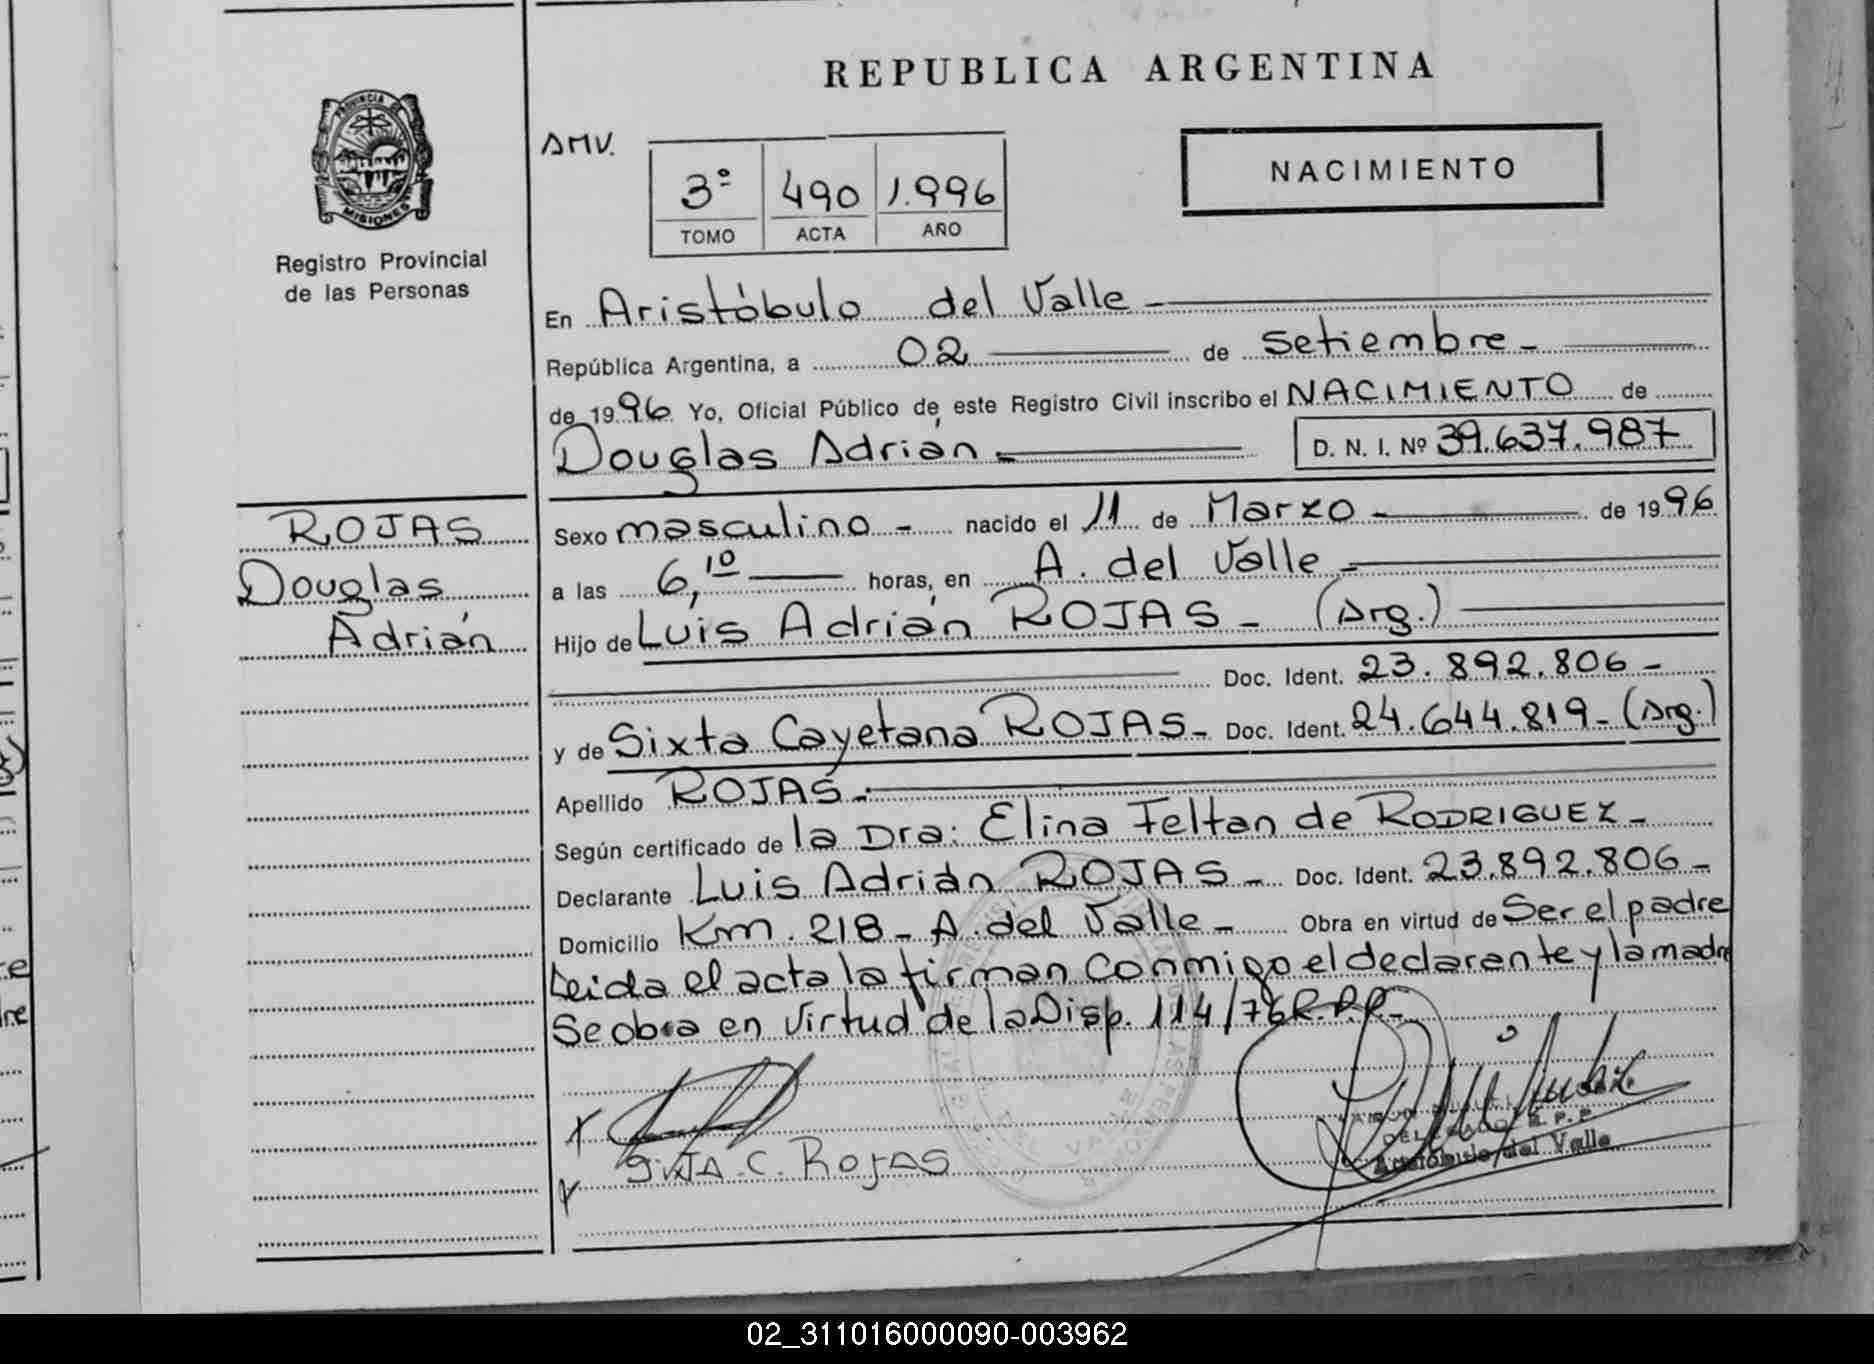 REPUBLICA ARGENTINA
PROVINCIA DE
MISIONES
Registro Provincial
de las Personas
AMV.
3º 490 1.996
TOMO ACTA AÑO
NACIMIENTO
En Aristóbulo del Valle
República Argentina, a 02 de Setiembre
de 1996 Yo, Oficial Público de este Registro Civil inscribo el NACIMIENTO de
Douglas Adrián D. N. I. Nº 39.637.987
ROJAS
Douglas
Adrián
Sexo masculino - nacido el 11 de Marzo de 1996
a las 6,10 horas, en A. del Valle
Hijo de Luis Adrián ROJAS - (Arg.)
Doc. Ident. 23.892.806 -
y de Sixta Cayetana ROJAS - Doc. Ident. 24.644.819 - (Arg.)
Apellido ROJAS.
Según certificado de la Dra: Elina Feltan de RODRIGUEZ -
Declarante Luis Adrián ROJAS - Doc. Ident. 23.892.806 -
Domicilio Km. 218 - A. del Valle - Obra en virtud de Ser el padre
Leida el acta la firman conmigo el declarante y la madre
Se obra en virtud de la Disp. 114/76 R.P.P. -
SixTA C. RojAS
DELEGADO R.P.P.
Aristóbulo del Valle
02_311016000090-003962